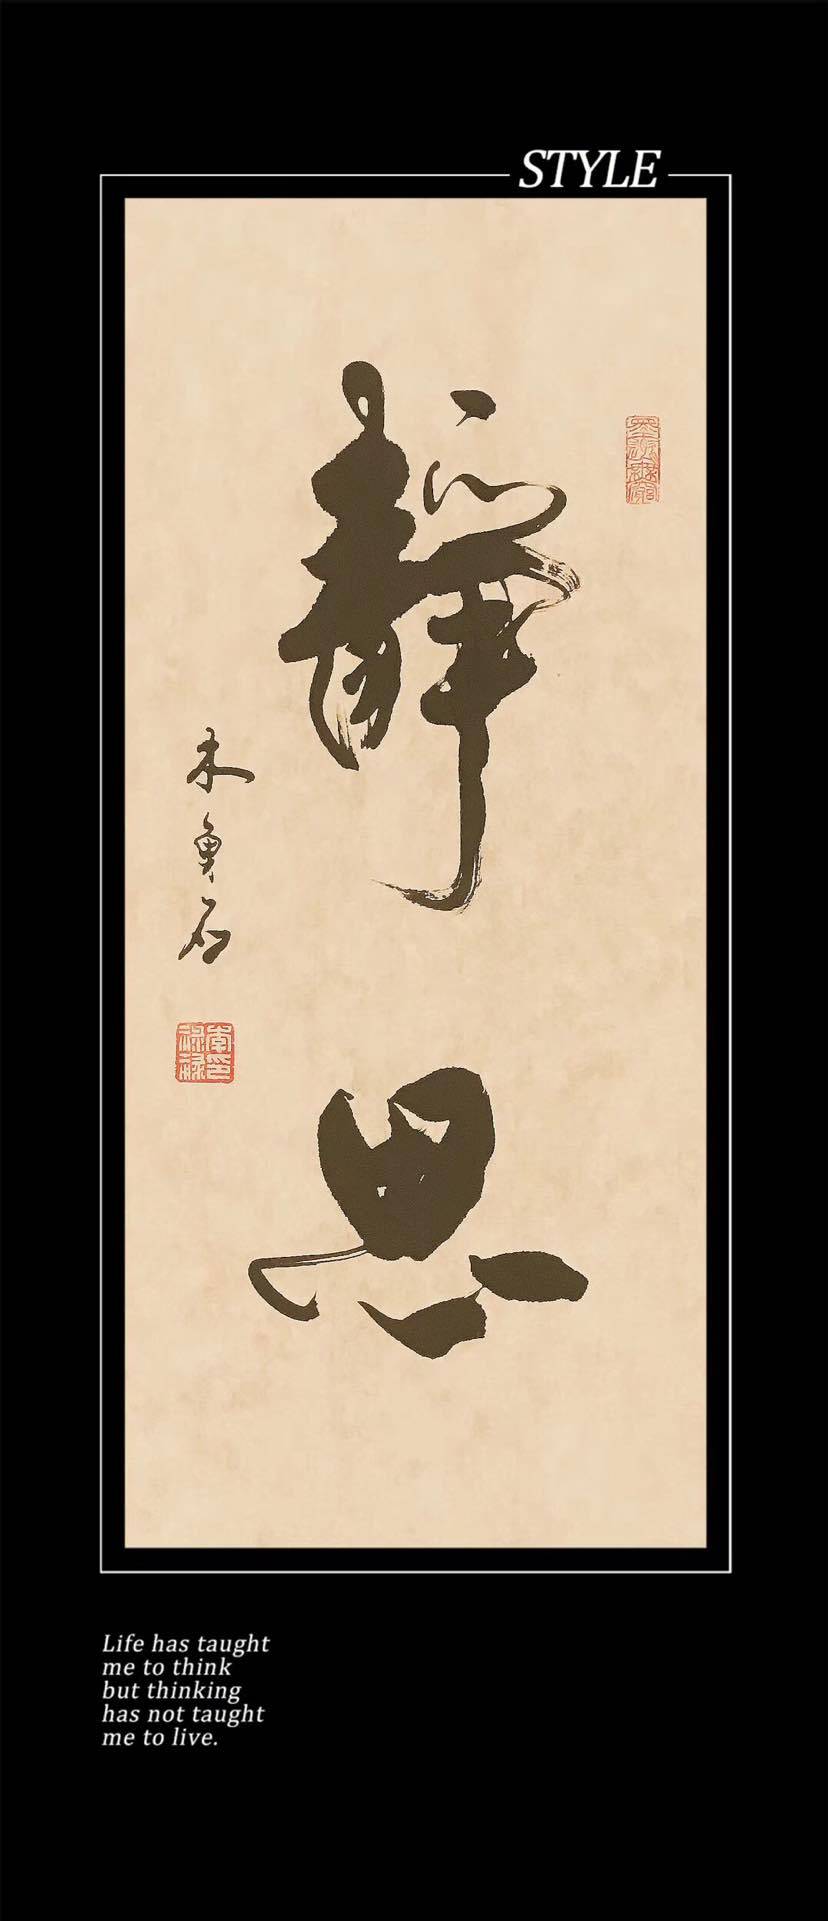 STYLE
靜思
Life has taught
me to think
but thinking
has not taught
me to live.